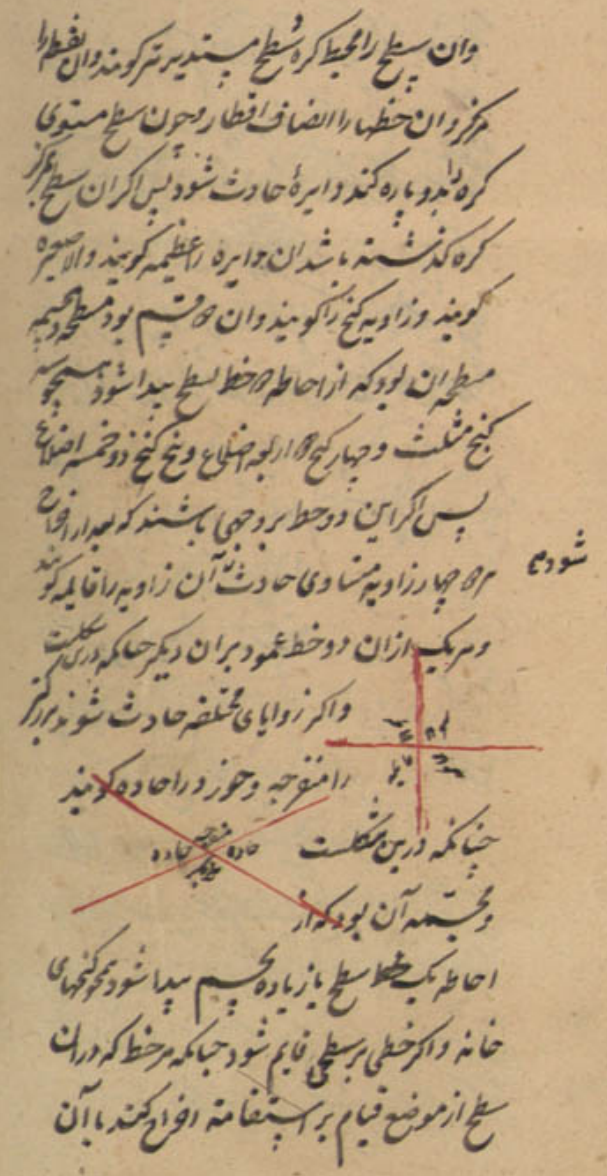 وان سطح را محیط کره و سطح مستدیر نیز کویند وان نقطه را
مرکز وان خطها را انصاف اقطار و چون سطح مستوی
کره را بدو پاره کند دایرهٔ حادث شود پس اکر ان سطح بر مرکز
کره کذشته باشد ان دایره را عظیمه کویند والا صغیره
کویند و زاویه کنج را کویند وان ۲ قسم بود مسطحه و مجسمه
مسطحه ان بود که از احاطه ۲ خط بسطح پیدا شود همچو سه
کنج مثلث و چهار کنج اربعه اضلاع و پنج کنج ذو خمسه اضلاع
پس اکر این دو خط بر وجهی باشند که بعد از اخراج
هر ۲ چهار زاویه متساوی حادث آن زاویه را قایمه کویند
شود
و هر یک ازان دو خط عمود بران دیکر چنانکه درین شکلست
واکر زوایای مختلفه حادث شوند بزرکتر
قایمه قایمه
قایمه قایمه
را منفرجه و خورد را حاده کویند
چنانکه درین شکلست
منفرجه
حاده حاده
منفرجه
و مجسمه آن بود که از
احاطه یک سطح یا زیاده بجسم پیدا شود همچو کنجهای
خانه و اکر خطی بر سطحی قایم شود چنانکه هر خط که دران
سطح از موضع قیام بر استقامة اخراج کنند با آن